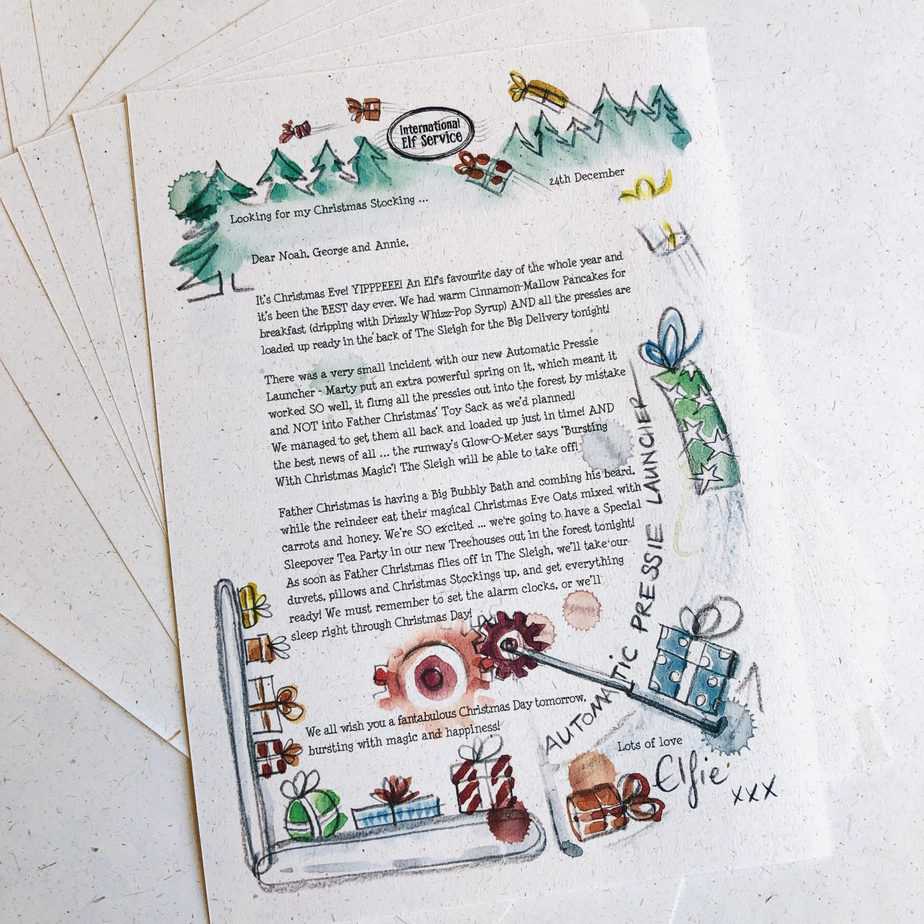 International
Elf Service
24th December
Looking for my Christmas Stocking ...
Dear Noah, George and Annie,
It's Christmas Eve! YIPPPEEE! An Elf's favourite day of the whole year and
it's been the BEST day ever. We had warm Cinnamon-Mallow Pancakes for
breakfast (dripping with Drizzly Whizz-Pop Syrup) AND all the pressies are
loaded up ready in the back of The Sleigh for the Big Delivery tonight!
There was a very small incident with our new Automatic Pressie
Launcher - Marty put an extra powerful spring on it, which meant it
worked SO well, it flung all the pressies out into the forest by mistake
and NOT into Father Christmas' Toy Sack as we'd planned!
We managed to get them all back and loaded up just in time! AND
the best news of all ... the runway's Glow-O-Meter says 'Bursting
With Christmas Magic'! The Sleigh will be able to take off!
Father Christmas is having a Big Bubbly Bath and combing his beard,
while the reindeer eat their magical Christmas Eve Oats mixed with
carrots and honey. We're SO excited ... we're going to have a Special
Sleepover Tea Party in our new Treehouses out in the forest tonight!
As soon as Father Christmas flies off in The Sleigh, we'll take our
duvets, pillows and Christmas Stockings up, and get everything
ready! We must remember to set the alarm clocks, or we'll
sleep right through Christmas Day!
We all wish you a fantabulous Christmas Day tomorrow,
bursting with magic and happiness!
AUTOMATIC PRESSIE LAUNCHER
Lots of love
Elfie
xxx